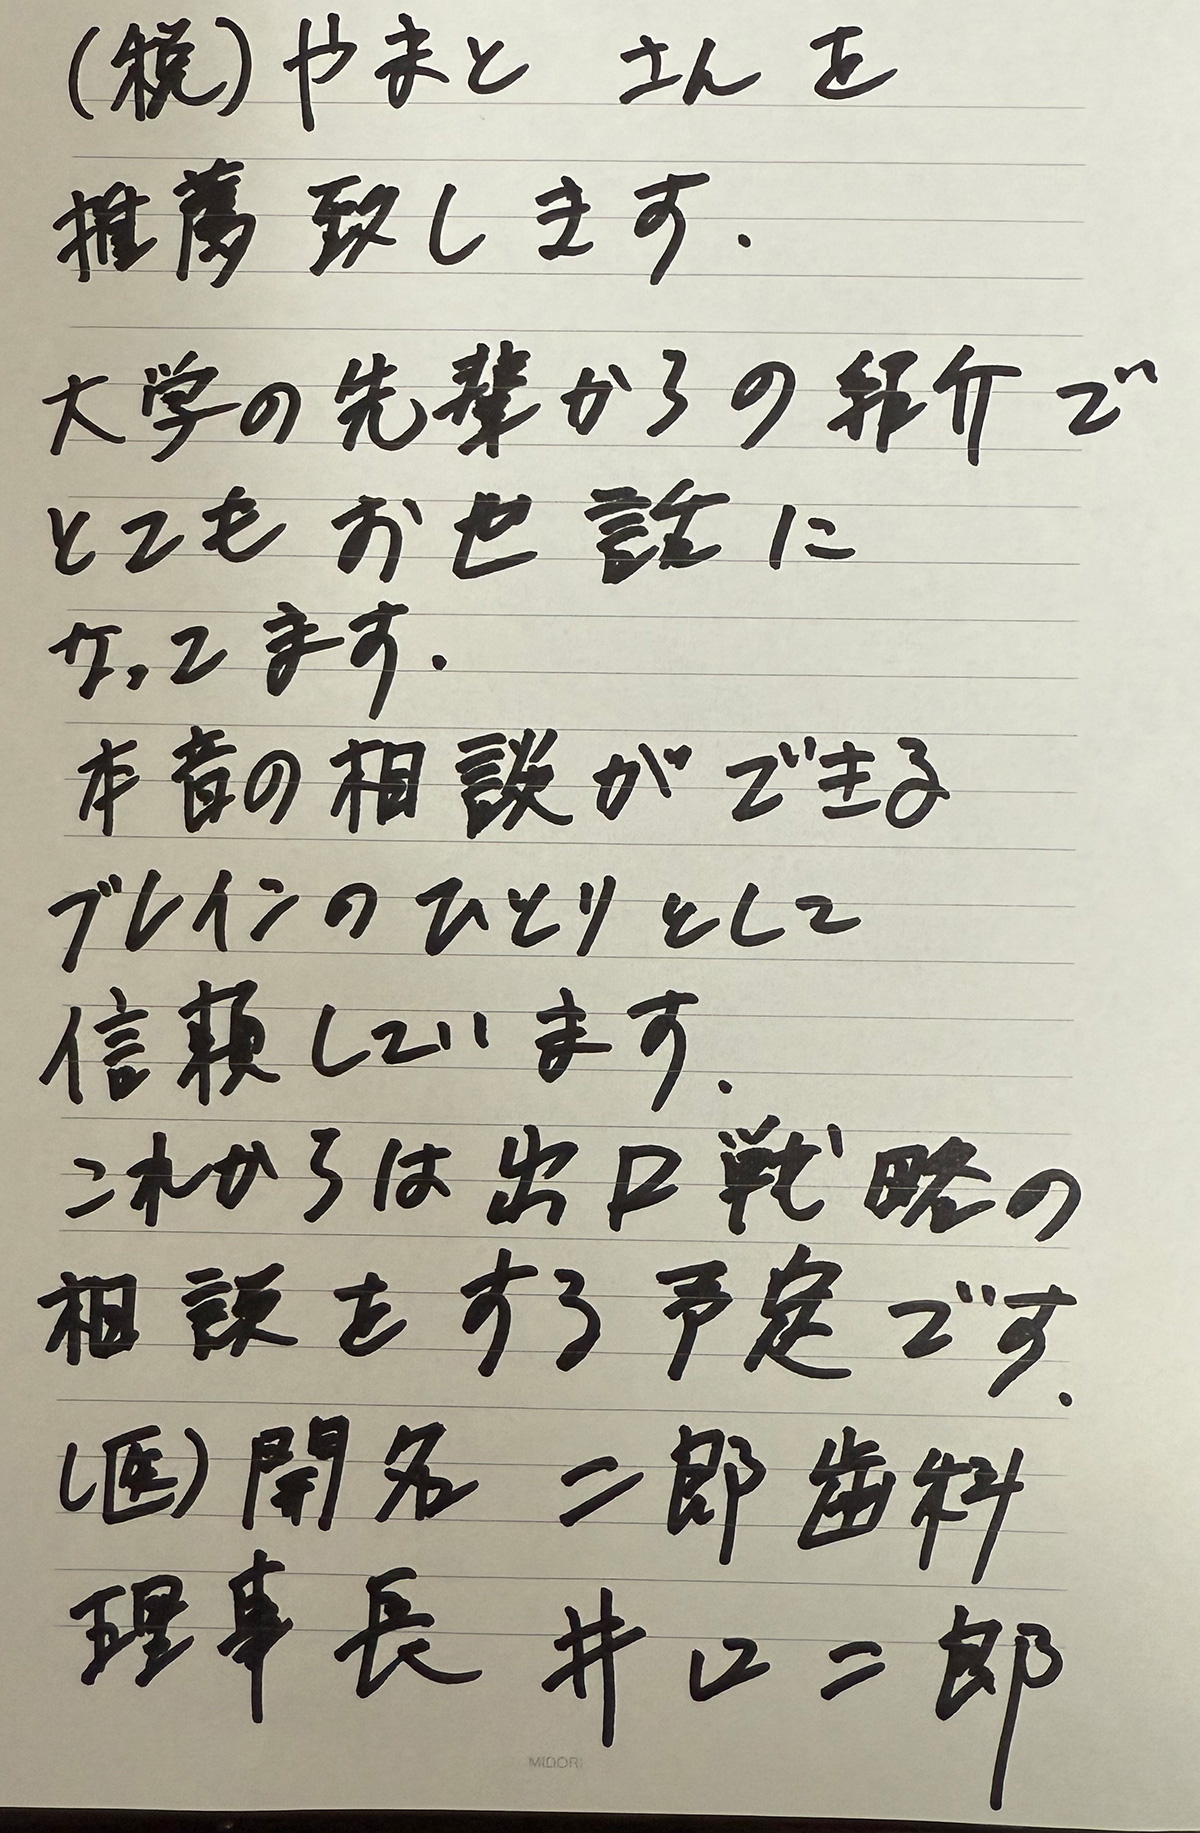 (税)やまと さんを
推薦致します.
大学の先輩からの紹介で
とてもお世話に
なってます.
本音の相談ができる
ブレインのひとりとして
信頼しています.
これからは出口戦略の
相談をする予定です.
(医)開名 二郎歯科
理事長 井口二郎
MIDORI